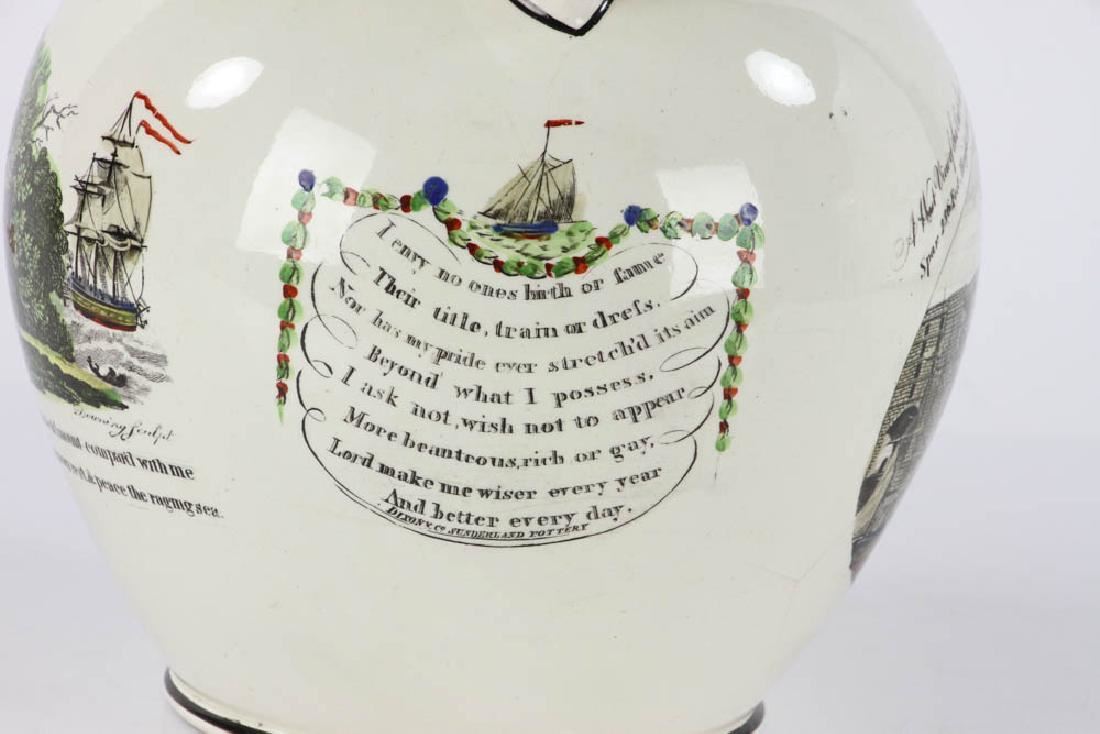 I envy no ones birth or fame
Their title, train or dreſs,
Nor has my pride ever stretch'd its aim
Beyond what I possess,
I ask not, wish not to appear
More beauteous, rich or gay,
Lord make me wiser every year
And better every day.
DIXON & Co SUNDERLAND POTTERY
Sculpt
compar'd with me
& peace the raging sea.